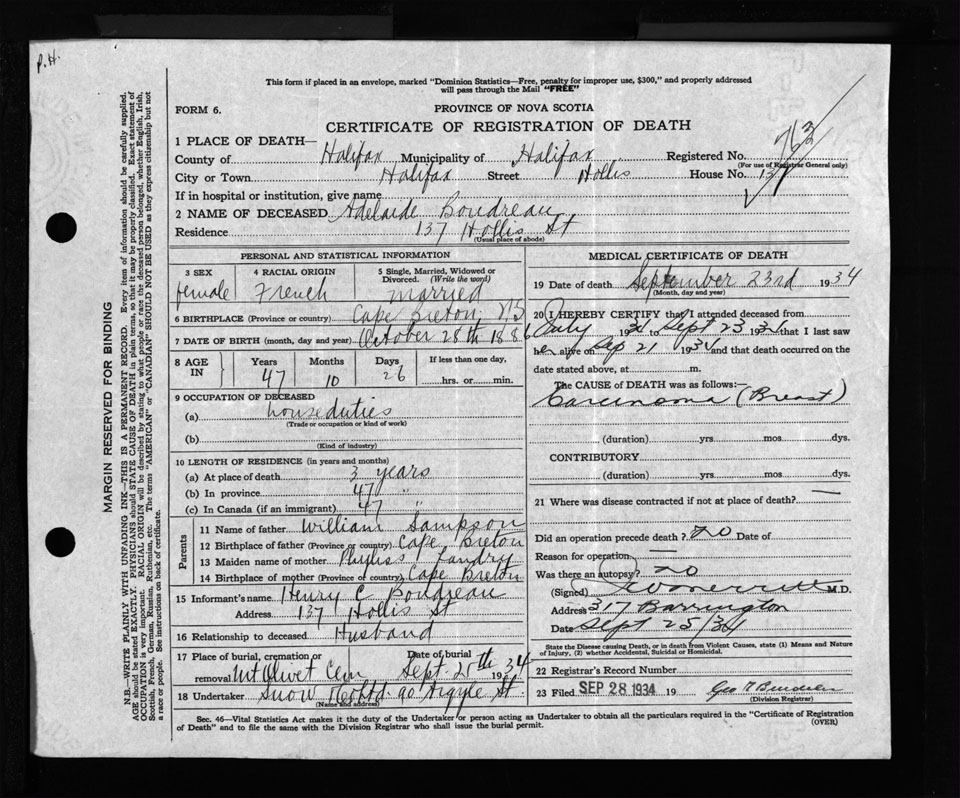 P.H.
This form if placed in an envelope, marked "Dominion Statistics—Free, penalty for improper use, $300," and properly addressed
will pass through the Mail "FREE"
FORM 6.
PROVINCE OF NOVA SCOTIA
CERTIFICATE OF REGISTRATION OF DEATH
MARGIN RESERVED FOR BINDING
N.B.—WRITE PLAINLY WITH UNFADING INK—THIS IS A PERMANENT RECORD. Every item of information should be carefully supplied.
AGE should be stated EXACTLY. PHYSICIANS should STATE CAUSE OF DEATH in plain terms, so that it may be properly classified. Exact statement of
OCCUPATION is very important. RACIAL ORIGIN will be described by stating to what people or race the deceased person belonged, whether English, Irish,
Scottish, French, German, Russian, Ruthenian, etc. The terms "AMERICAN" or "CANADIAN" SHOULD NOT BE USED as they express citizenship but not
a race or people. See instructions on back of certificate.
1 PLACE OF DEATH—
763
County of Halifax Municipality of Halifax Registered No.
(For use of Registrar General only)
City or Town Halifax Street Hollis House No. 137
If in hospital or institution, give name
2 NAME OF DECEASED Adelaide Boudreau
Residence 137 Hollis St
(Usual place of abode)
PERSONAL AND STATISTICAL INFORMATION
3 SEX 4 RACIAL ORIGIN 5 Single, Married, Widowed or
Divorced. (Write the word)
female French married
6 BIRTHPLACE (Province or country) Cape Breton N/S
7 DATE OF BIRTH (month, day and year) October 28th 1886
8 AGE IN Years Months Days If less than one day,
47 10 26 hrs. or min.
9 OCCUPATION OF DECEASED
(a) house duties
(Trade or occupation or kind of work)
(b)
(Kind of industry)
10 LENGTH OF RESIDENCE (in years and months)
(a) At place of death 3 years
(b) In province 47 "
(c) In Canada (if an immigrant) 47 "
Parents
11 Name of father William Sampson
12 Birthplace of father (Province or country) Cape Breton
13 Maiden name of mother Phyliss Landry
14 Birthplace of mother (Province or country) Cape Breton
15 Informant's name Henry C Boudreau
Address 137 Hollis St
16 Relationship to deceased Husband
17 Place of burial, cremation or Date of burial
removal Mt Olivet Cem Sept 25th 1934
18 Undertaker Snow 90 Argyle St.
(Name and address)
MEDICAL CERTIFICATE OF DEATH
19 Date of death September 23rd 1934
(Month, day and year)
20 I HEREBY CERTIFY that I attended deceased from
July 1934 to Sept 23 1934 that I last saw
her alive on Sep 21 1934 and that death occurred on the
date stated above, at m.
The CAUSE OF DEATH was as follows:—
Carcinoma (Breast)
(duration) yrs mos dys.
CONTRIBUTORY
(duration) yrs mos dys.
21 Where was disease contracted if not at place of death? —
Did an operation precede death? no Date of
Reason for operation —
Was there an autopsy? no
(Signed) M.D.
Address 317 Barrington
Date Sept 25/34
State the Disease causing Death, or in death from Violent Causes, state (1) Means and Nature
of Injury, (2) whether Accidental, Suicidal or Homicidal.
22 Registrar's Record Number
23 Filed SEP 28 1934 19
(Division Registrar)
Sec. 46—Vital Statistics Act makes it the duty of the Undertaker or person acting as Undertaker to obtain all the particulars required in the "Certificate of Registration
of Death" and to file the same with the Division Registrar who shall issue the burial permit. (OVER)